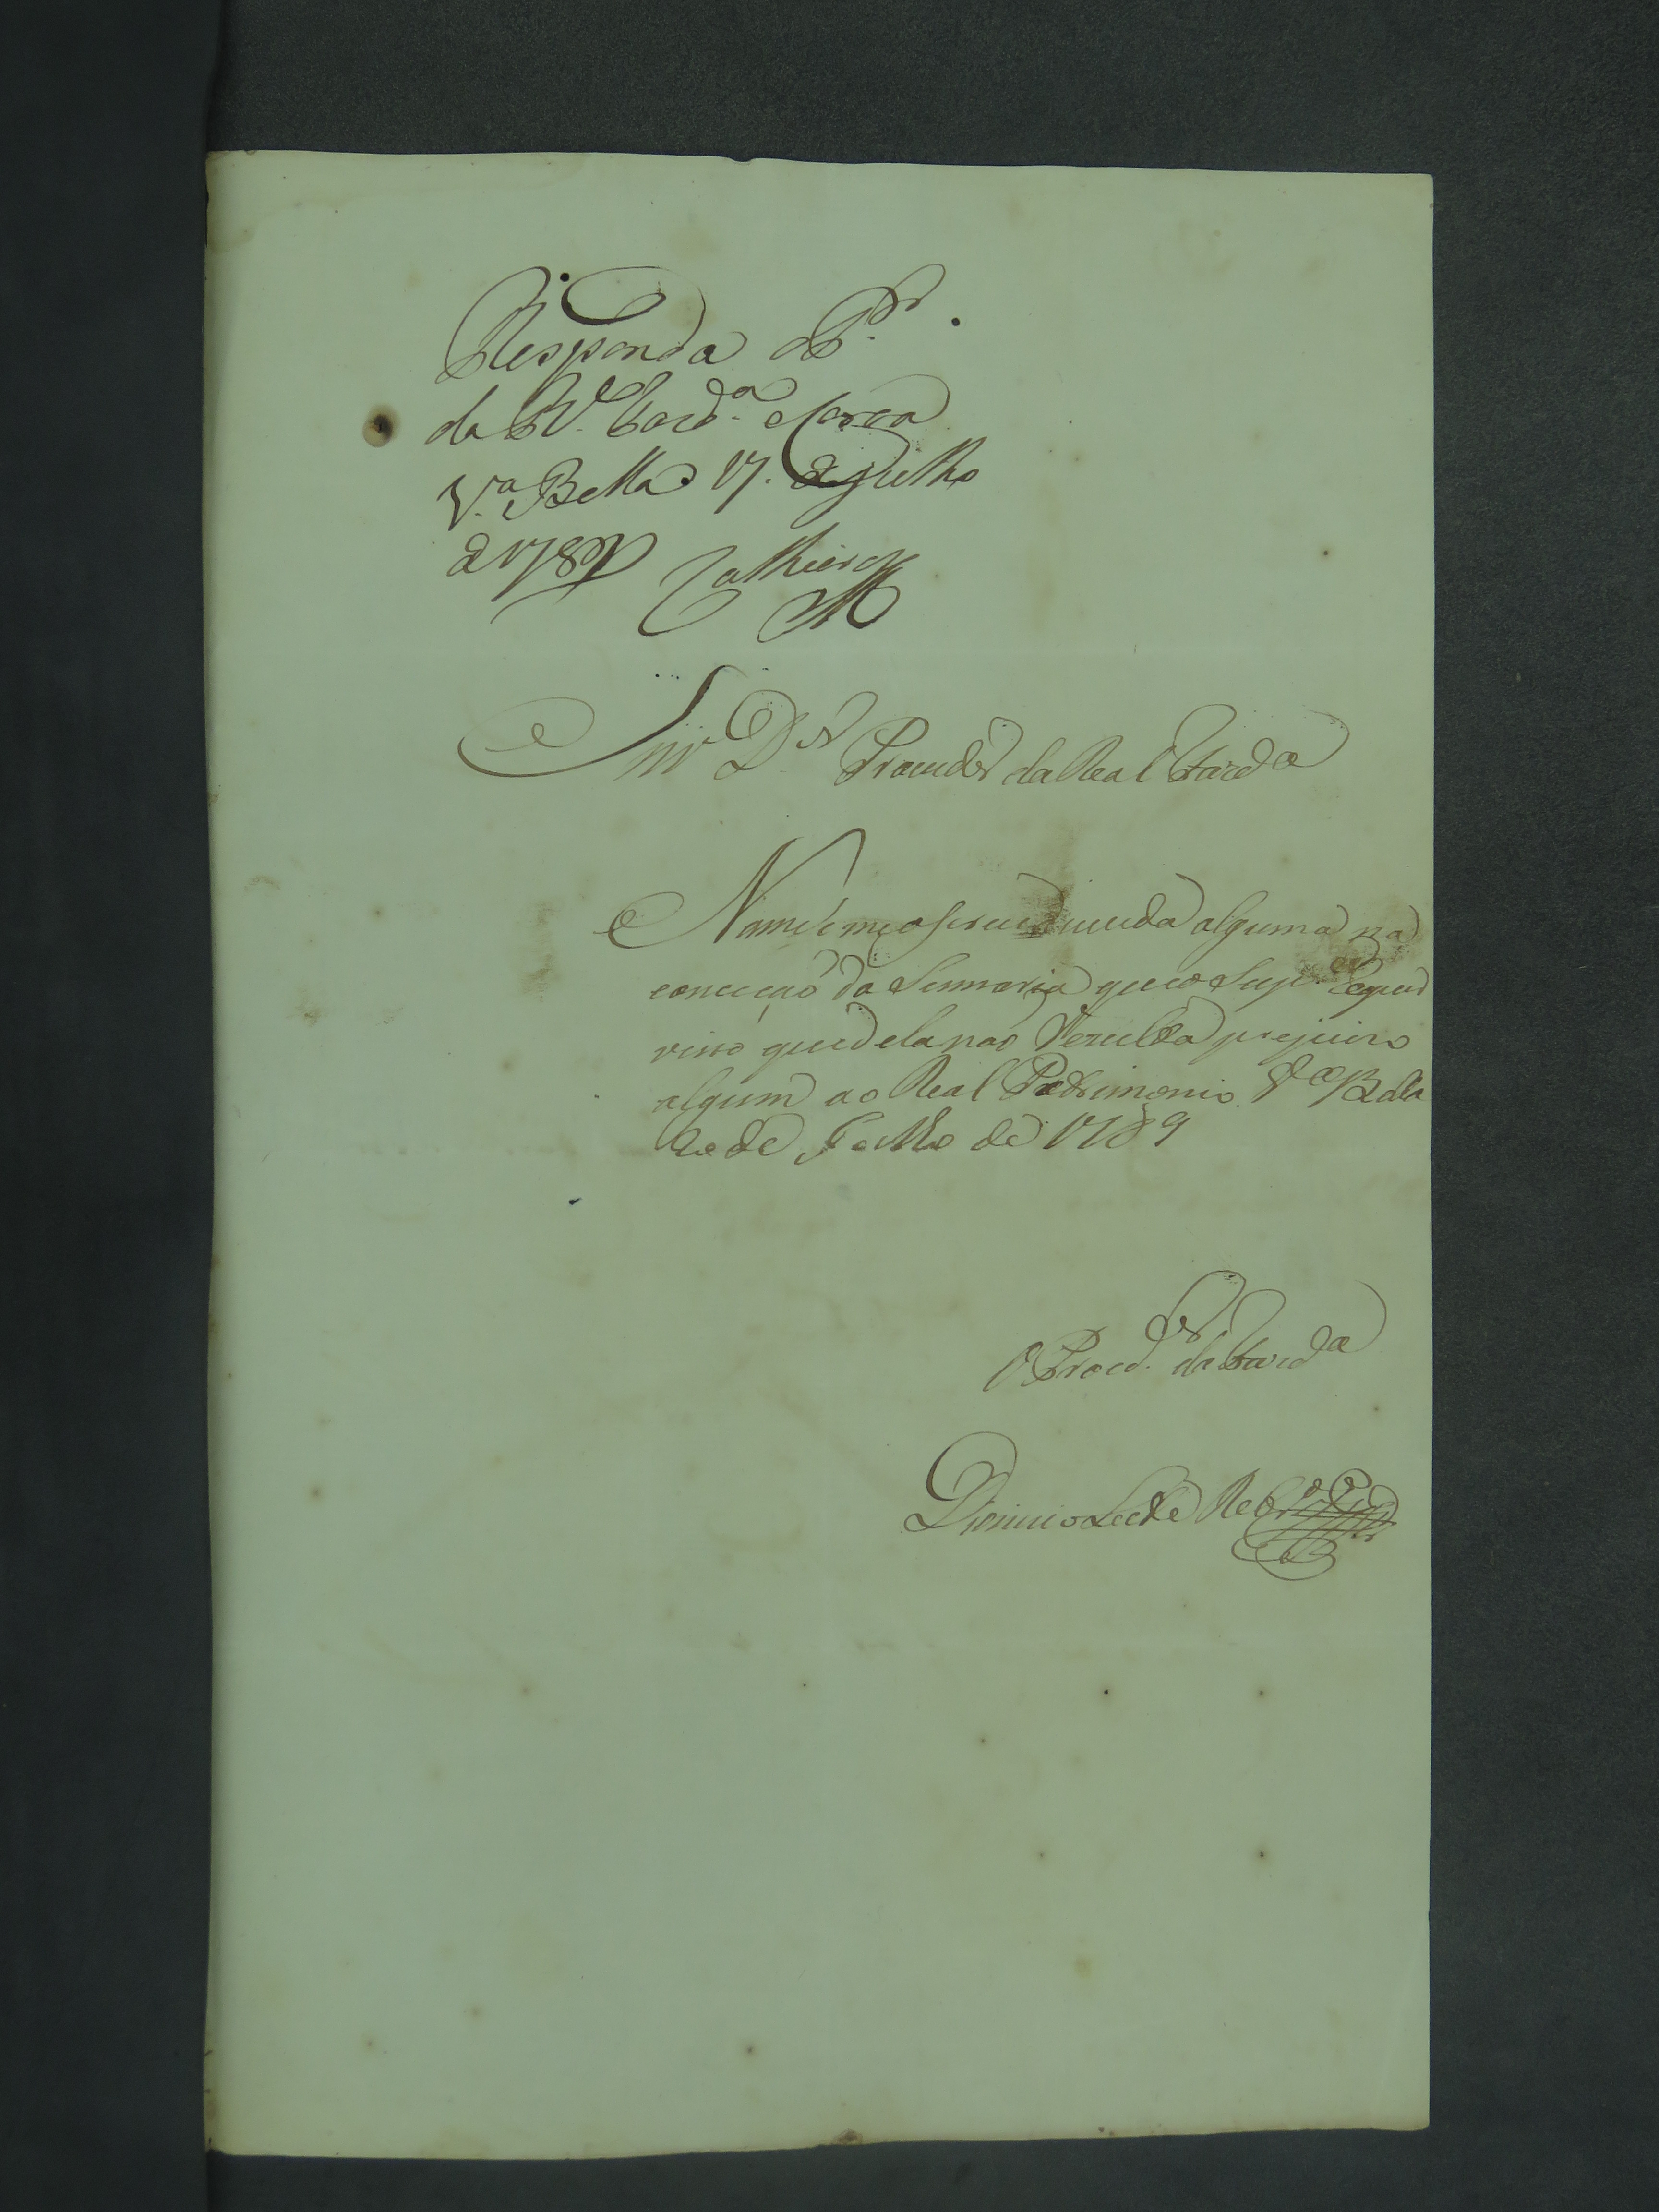 Responda o P.or
da R.l Fazd.a e Coroa
V.a Bella 17. de Julho
de 1789
Snr D.or Provedor da Real Fazda
Nam se me oferece duvida alguma na
conceçaõ da Sesmaria que o Sup.e Requer
visto que dela nao Rezulta prejuizo
algum ao Real Patrimonio V.a Bella
de Julho de 1789
O Procd.or da Fazda
Dionizio Leite